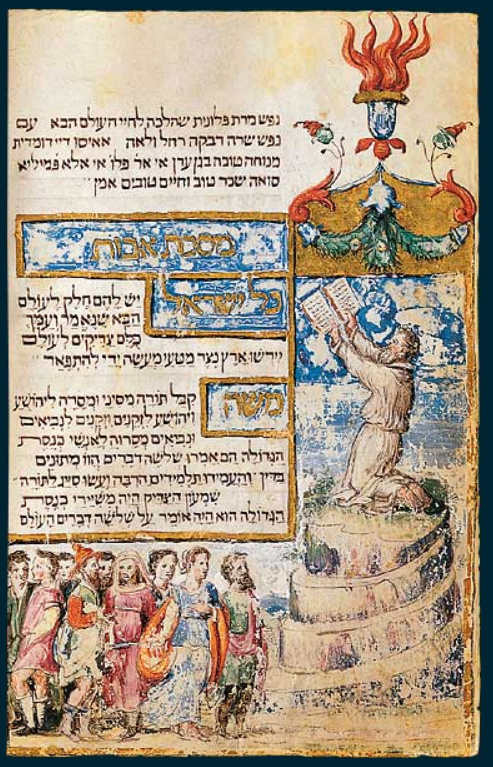 נפש מרת פלונית שהלכה לחיי העולם הבא עם
נפש שרה רבקה רחל ולאה
מנוחה טובה בגן עדן אי אל פלו אי אלא פמיליא
סואה שכר טוב וחיים טובים אמן
מסכת אבות
כל ישראל
יש להם חלק לעולם
הבא שנאמר ועמך
כלם צדיקים לעולם
יירשו ארץ נצר מטעי מעשה ידי להתפאר
משה
קבל תורה מסיני ומסרה ליהושע
ויהושע לזקנים וזקנים לנביאים
ונביאים מסרוה לאנשי כנסת
הגדולה הם אמרו שלשה דברים הוו מתונים
בדין והעמידו תלמידים הרבה ועשו סייג לתורה
שמעון הצדיק היה משיירי כנסת
הגדולה הוא היה אומר על שלשה דברים העולם